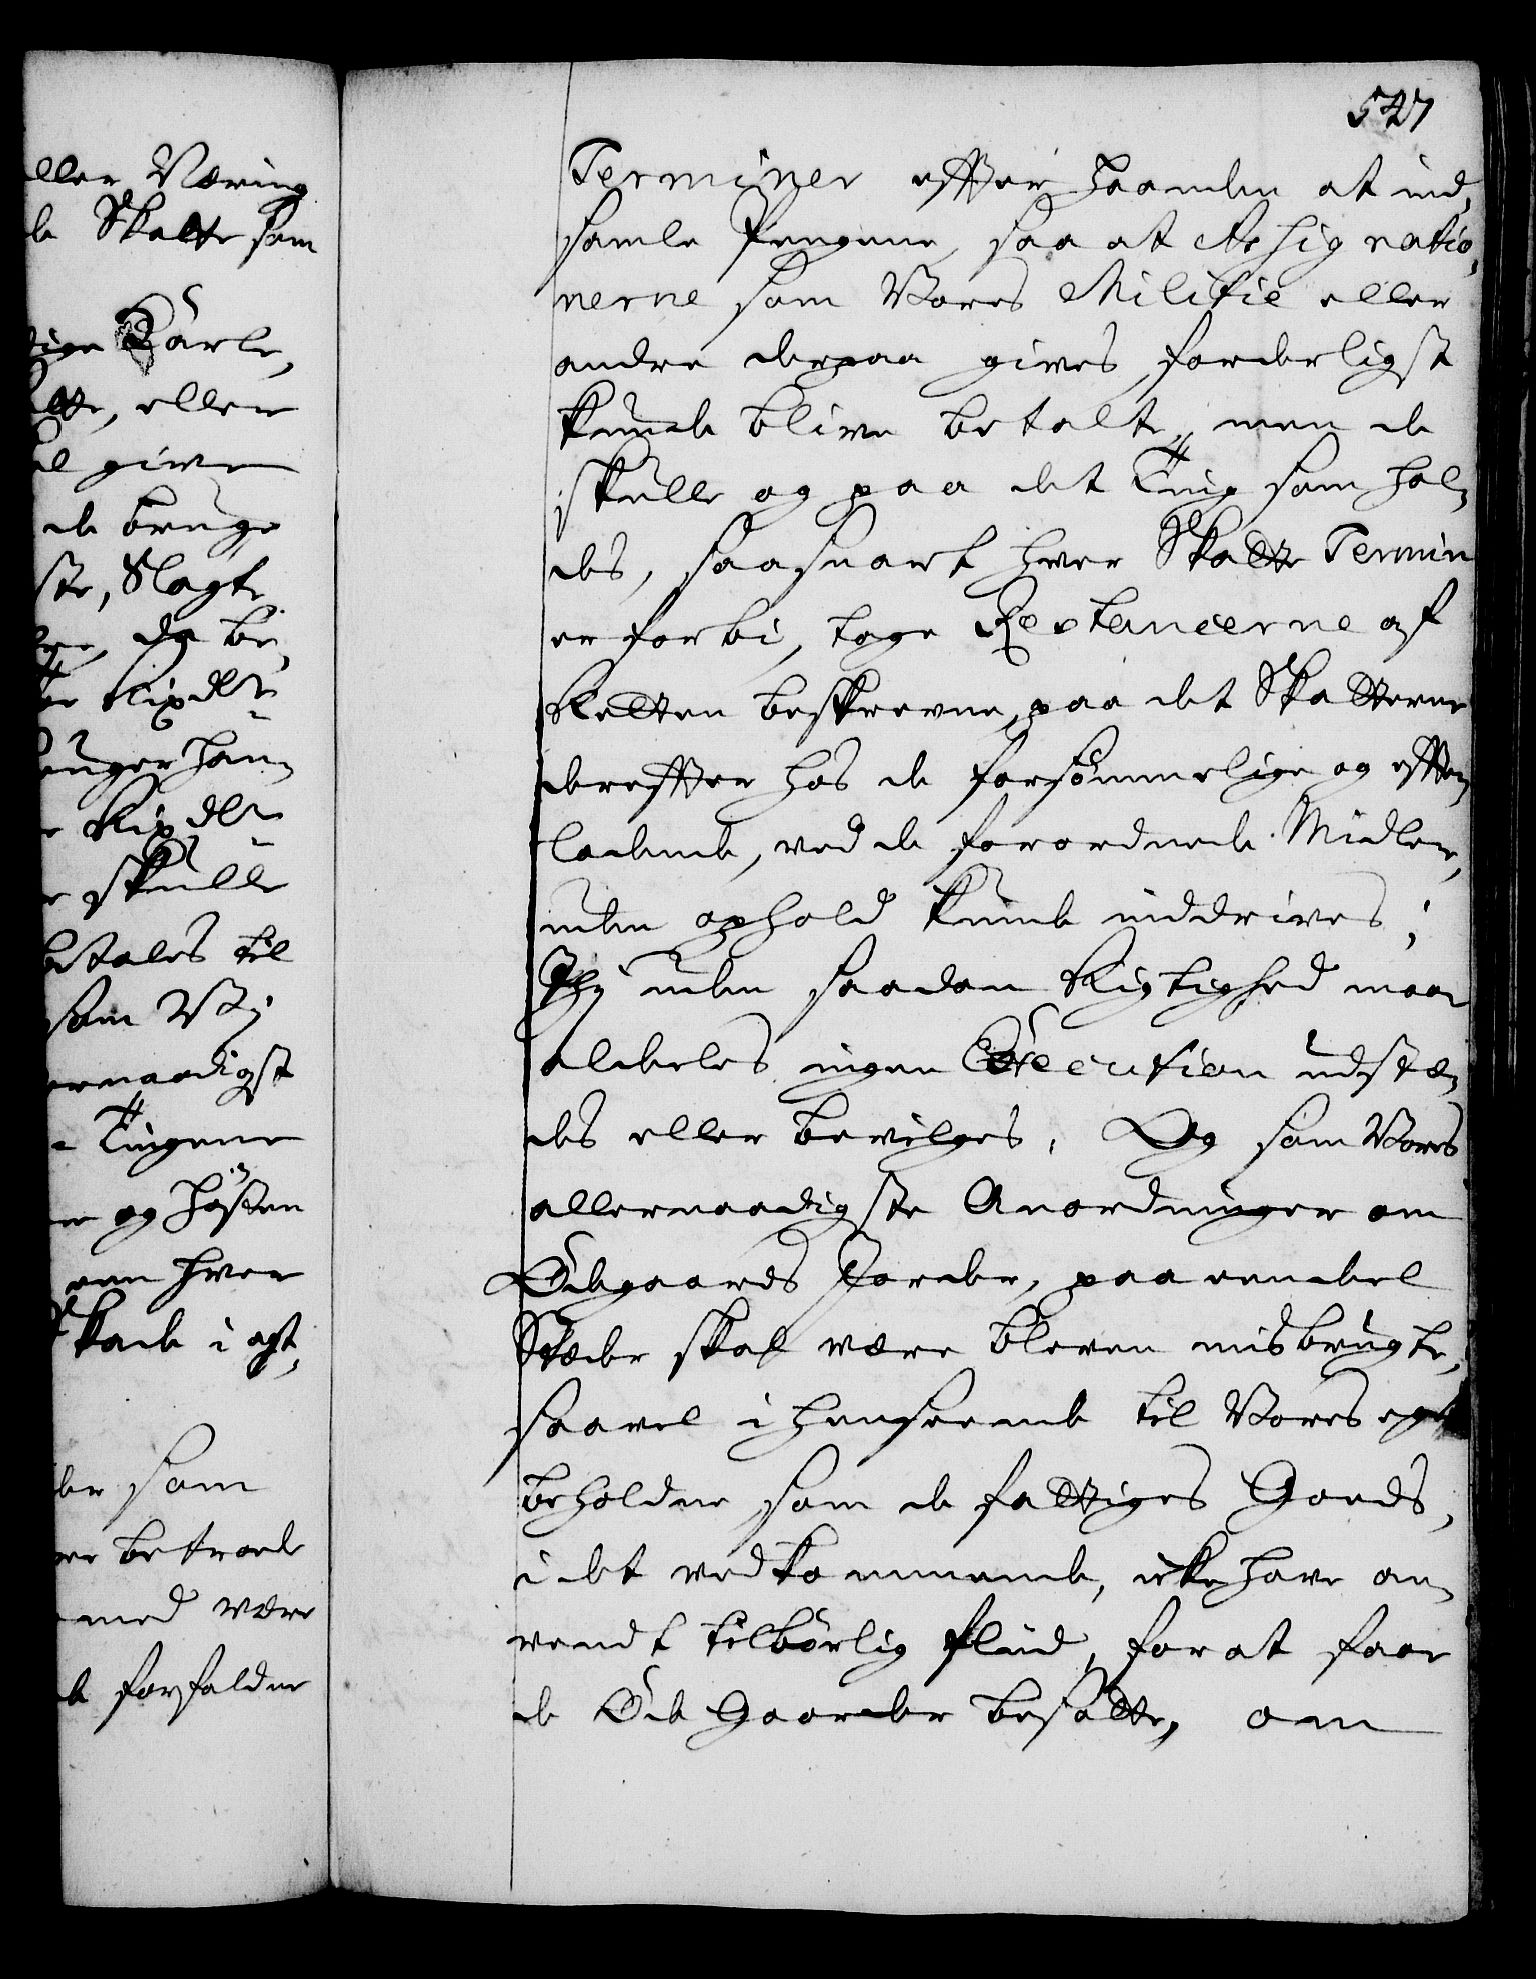 eller Næring
de Skatte som
dige Kårle,
atte, eller
al give
de bruge
ste, Slagte
da be,
er Rixdlr
bruger han,
Rixdlr
r skulle
betales til
som Vi
ernaadigst
Tingene
og Høsten
een hver
Skade i agt,
der som
betroede
med være
de forfaldne
547
Terminer effter haanden at ind,
samle Pengene, saa at Assignatio,
nerne som Vores Militie eller
andre derpaa gives, forderligst
kunde blive betalt, men de
skulle og paa det Ting som hol,
des, saasnart hver Skatte Termin
er forbi, tage Restancerne af
Retten beskrevne, paa det Skatterne
dereffter hos de forsømmelige og effter,
ladende, ved de forordnede Midler,
uden ophold kunde inddrives;
Thj uden saadan Rigtighed maae
aldeles ingen Execution udstæ,
des eller bevilges. Og som Vores
allernaadigste Anordninger om
Ödegaards Jorder, paa eendeel
Stæder skal være bleven misbrugte,
saavel i henseende til Vores eget
beholdne som de fattiges Gods,
i det vedkommende, icke have an,
vendt tilbørlig fliid, for at faae
de Öde Gaarder besatte, om